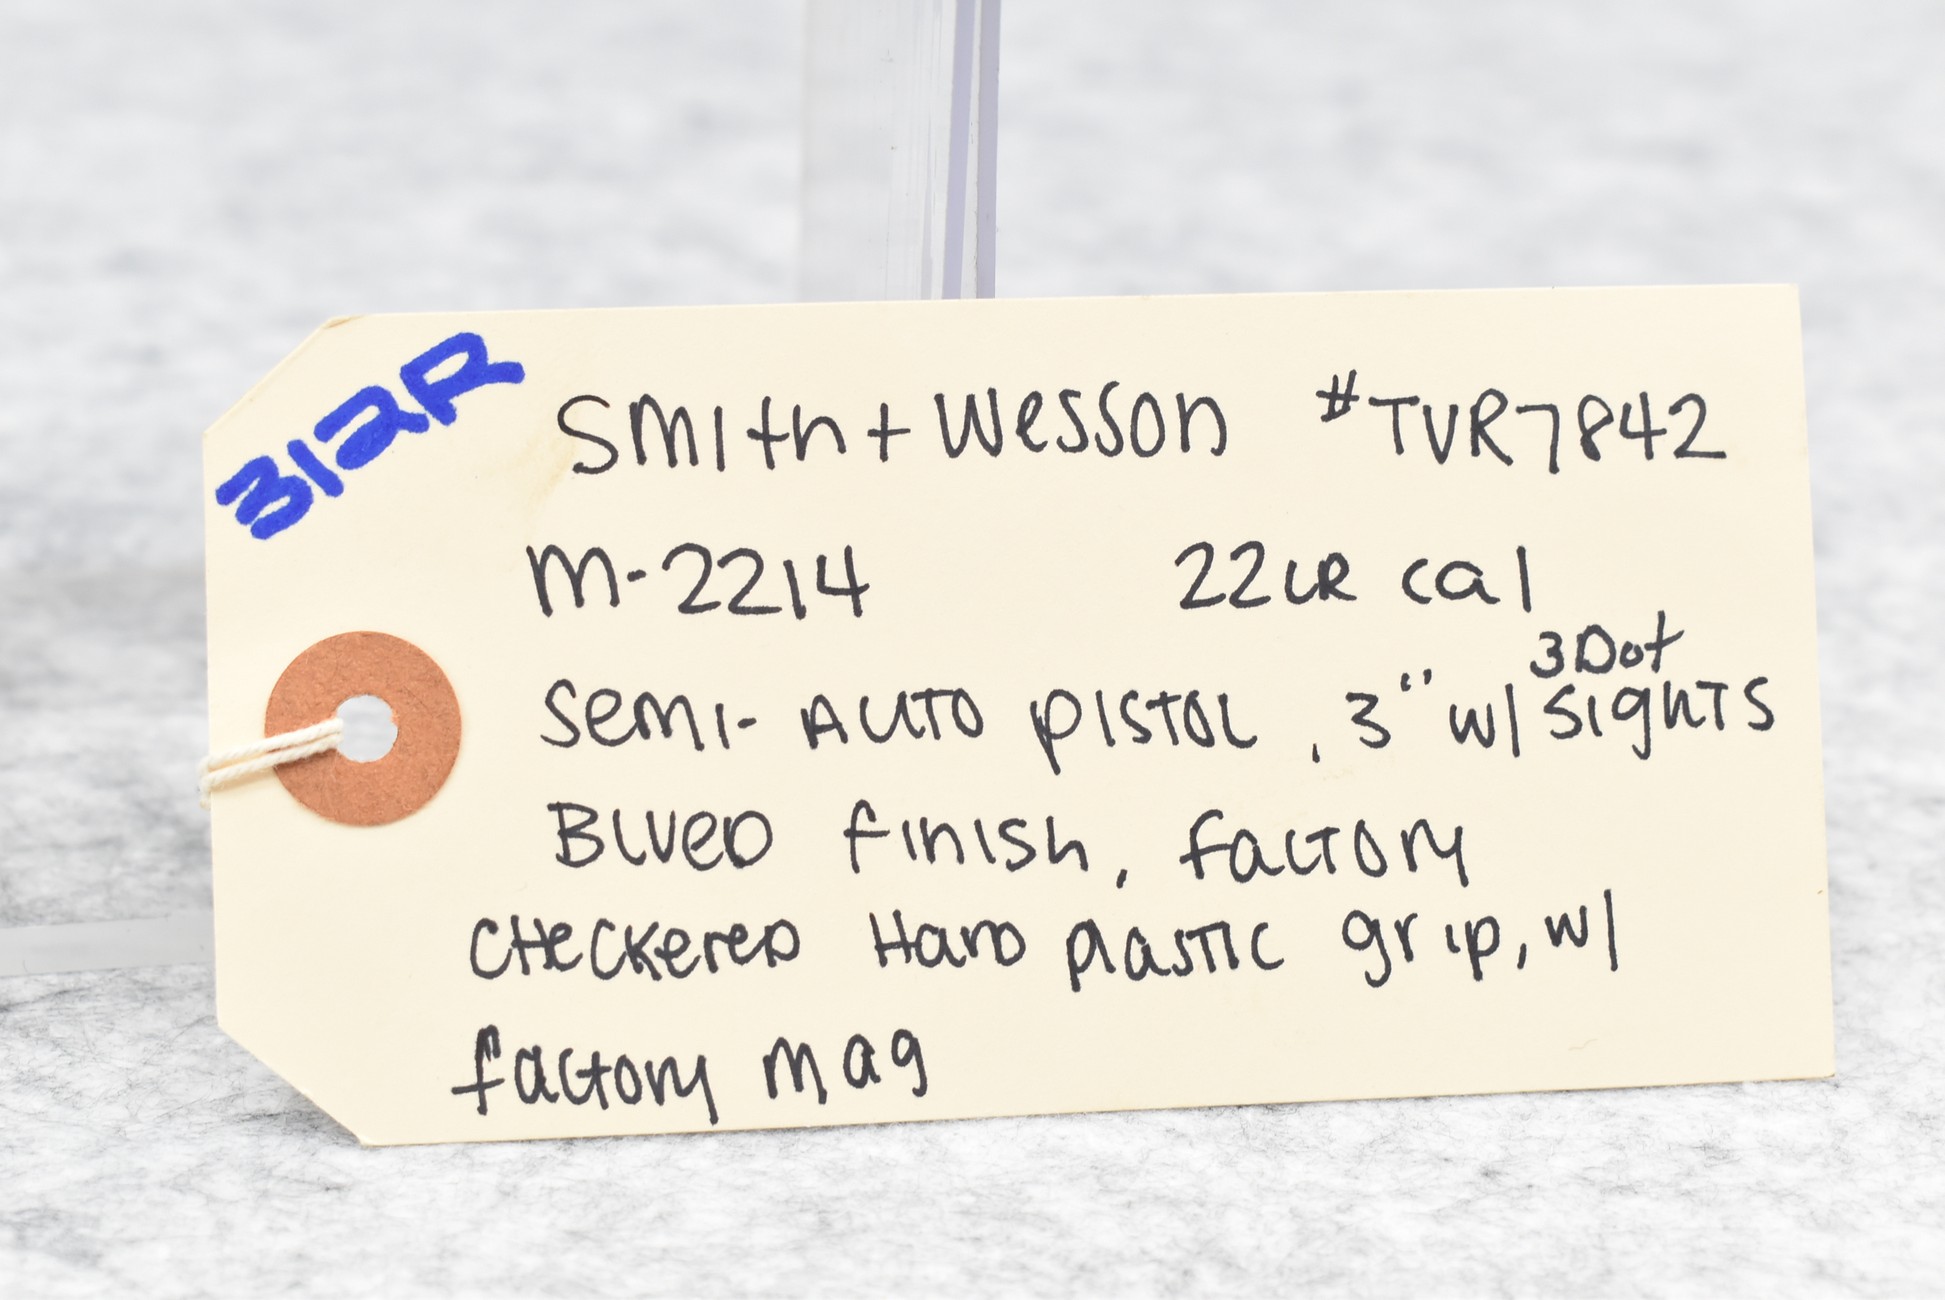 312R
Smith + Wesson #TVR7842
M-2214 22LR cal
3Dot
Semi-AUTO PISTOL, 3" w/ SIGHTS
BLUED finish, factory
CHeCKereD Hard plastic grip, w/
factory mag